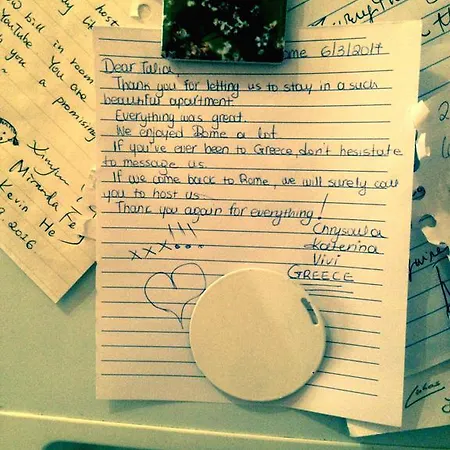 Rome 6/3/2017
Dear Julia,
Thank you for letting us to stay in a such
beautiful apartment.
Everything was great.
We enjoyed Rome a lot.
If you've ever been to Greece, don't hesistate
to message us.
If we come back to Rome, we will surely call
you to host us
Thank you again for everything!
!!!
xxx
Chrysoula
Katerina
Vivi
GREECE
bill in room
YouTube. You are
you a promising
Miranda Fe
Kevin He
2016